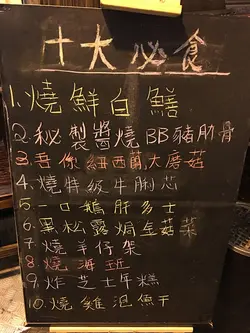 十大必食
1.燒鮮白鱔
2.秘製醬燒BB豬肋骨
3.吾你紐西蘭大蘑菇
4.燒特級牛脷芯
5.一口鵝肝多士
6.黑松露焗金菇菜
7.燒羊仔架
8.燒海班
9.炸芝士年糕
10.燒雞泡魚干